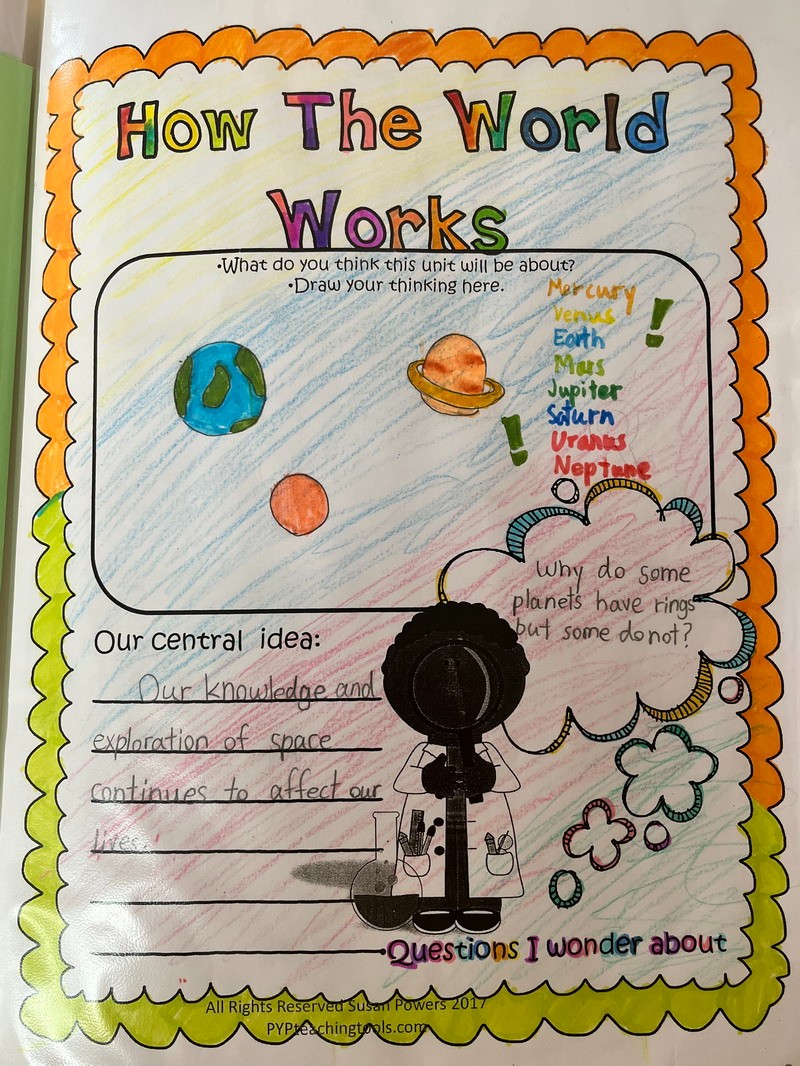 How The World
Works
•What do you think this unit will be about?
•Draw your thinking here.
Mercury
Venus
Earth
Mars
Jupiter
Saturn
Uranus
Neptune
!
!
Why do some
planets have rings
but some do not?
Our central idea:
Our knowledge and
exploration of space
continues to affect our
lives.
Questions I wonder about
All Rights Reserved Susan Powers 2017
PYPteachingtools.com